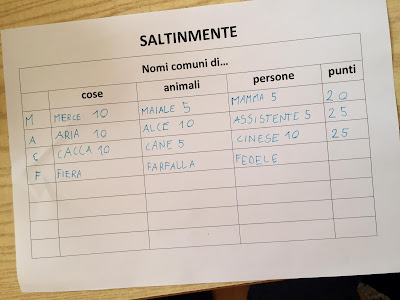 SALTINMENTE
Nomi comuni di...
cose animali persone punti
M MERCE 10 MAIALE 5 MAMMA 5 20
A ARIA 10 ALCE 10 ASSISTENTE 5 25
C CACCA 10 CANE 5 CINESE 10 25
F FIERA FARFALLA FEDELE